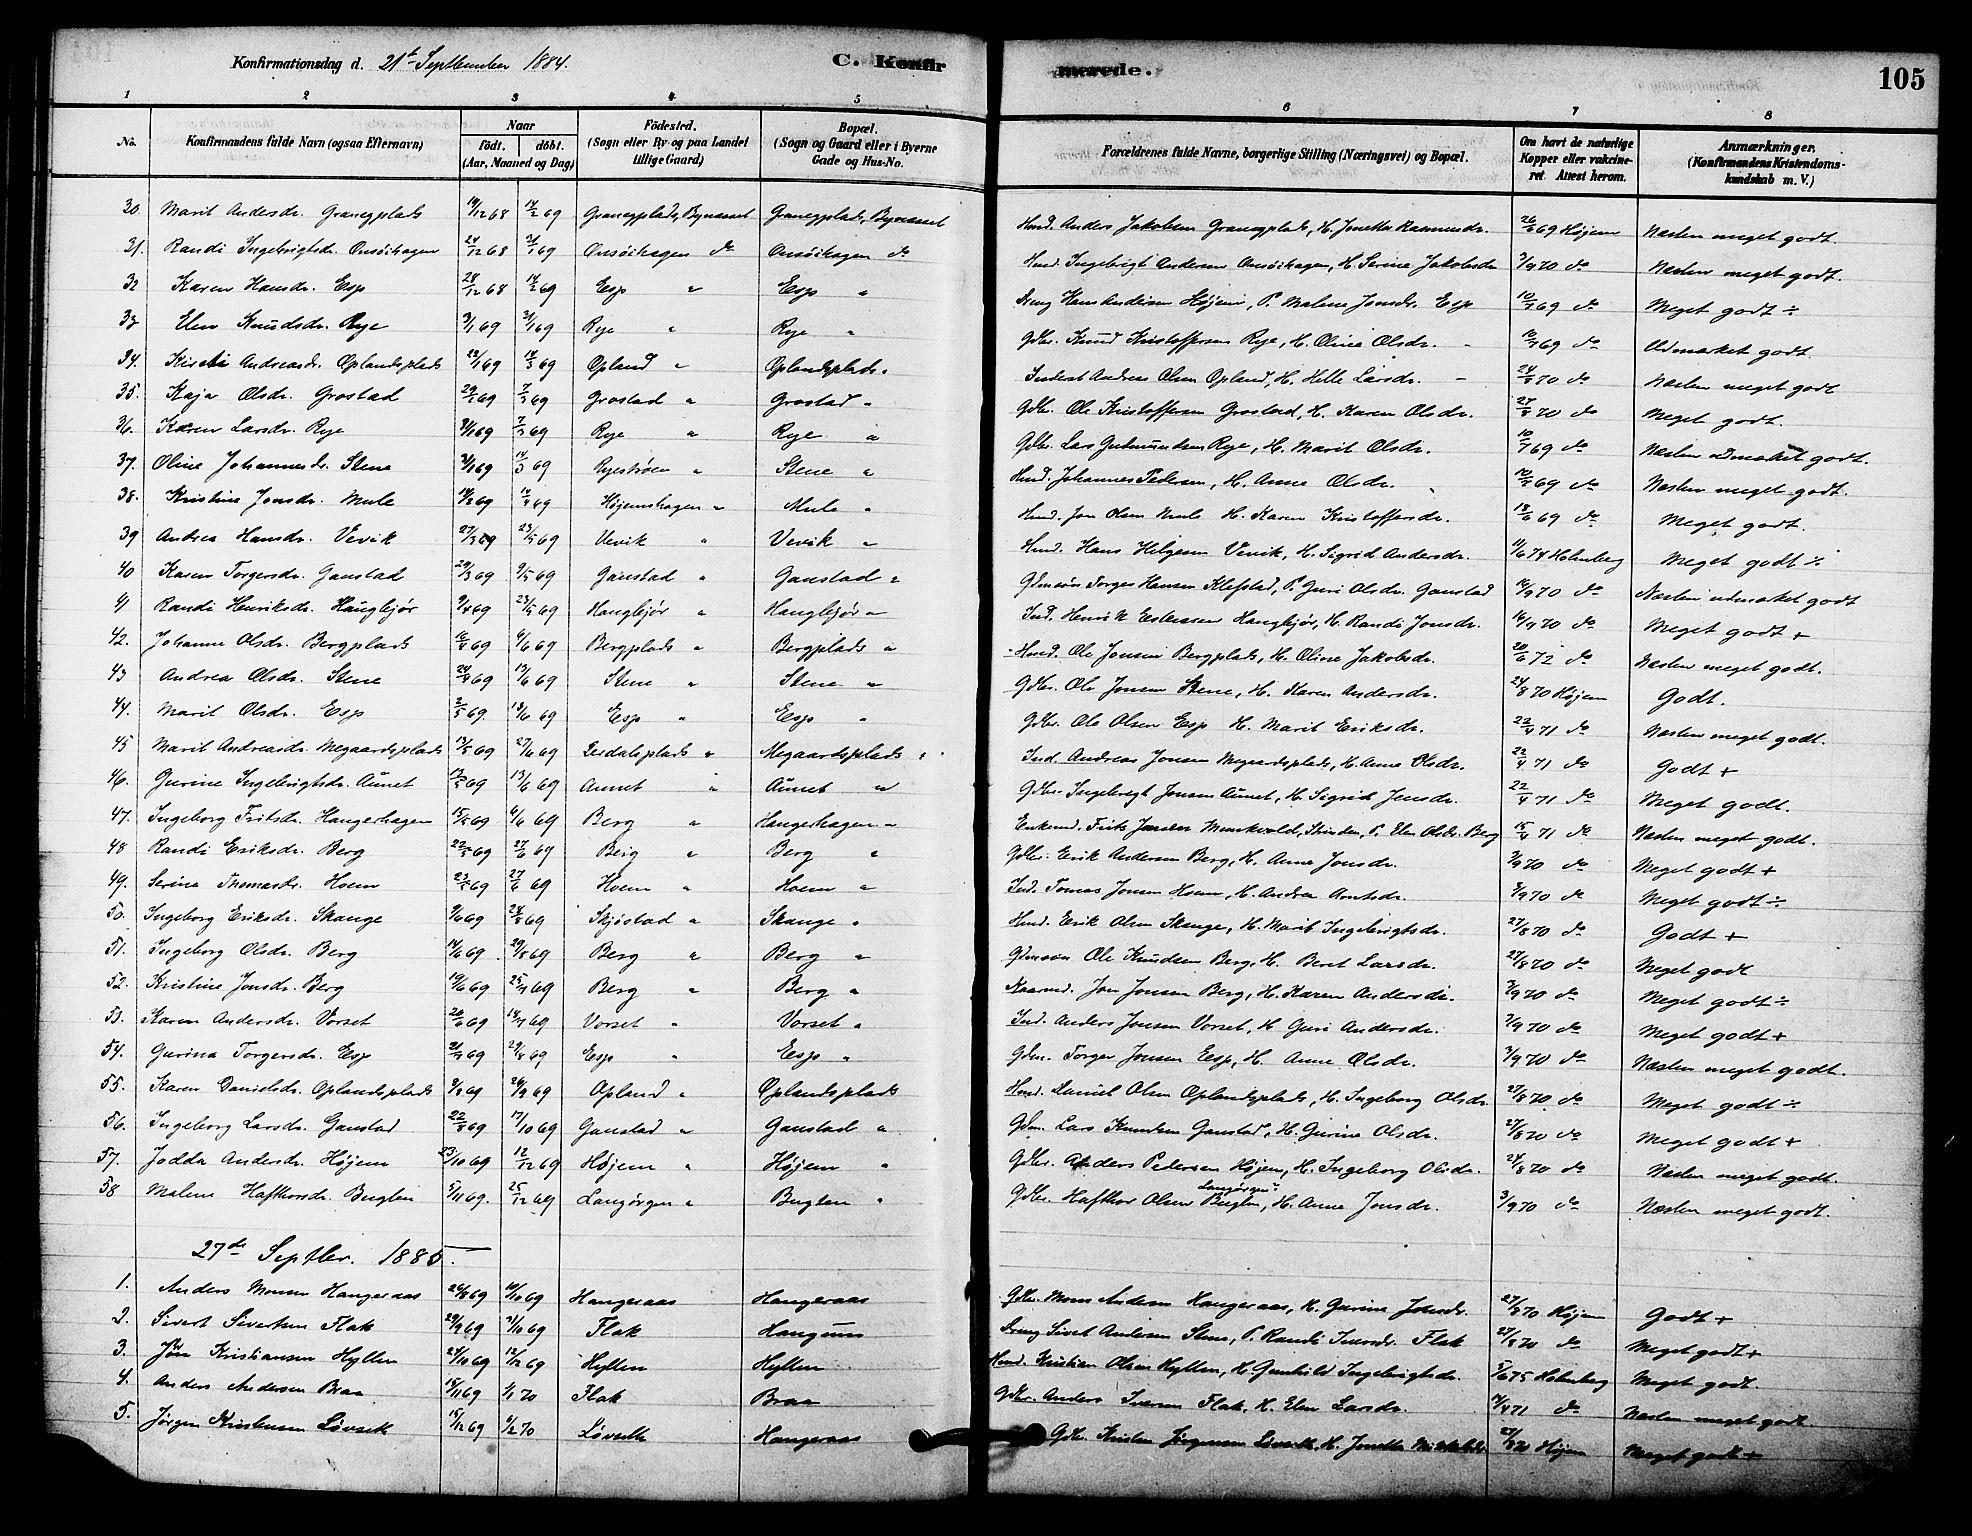 Konfirmationsdag d. 21de September 1884. C. Konfirmerede. 105
1 2 3 4 5 6 7 8
No. Konfirmandens fulde Navn (ogsaa Efternavn) Naar født. døbt. (Aar, Maaned og Dag) Fødested. (Sogn eller By og paa Landet tillige Gaard) Bopæl. (Sogn og Gaard eller i Byerne Gade og Hus-No. Forældrenes fulde Navne, borgerlige Stilling (Næringsvei) og Bopæl. Om havt de naturlige Kopper eller vakcineret. Attest herom. Anmærkninger. (Konfirmandens Kristendomskundskab m. V.)
30. Marit Andersdr. Graneplads 19/12 68 14/2 69 Graneplads, Bynesset Graneplads, Bynesset Husd. Anders Jakobsen Graneplads, H. Jonetta Rasmusdr. 26/6 69 Højem Næsten meget godt.
31. Randi Ingebrigtsdr. Onsöihagen 24/12 68 31/1 69 Onsöihagen do Onsöihagen do Husd. Ingebrigt Andersen Onsöihagen, H. Serine Jakobsdr 3/9 70 do Næsten meget godt.
32 Karen Hansdr. Esp 28/12 68 14/2 69 Esp " Esp " Dreng Hans Andersen Højem, P. Malene Jonsdr. Esp 10/7 69 do Meget godt ÷
33 Elen Knudsdr. Rye 3/1 69 31/1 69 Rye " Rye " Gdbr. Knud Kristoffersen Rye, H. Oline Olsdr. 10/7 69 do Udmærket godt.
34. Kirsti Andreasdr. Oplandsplads 23/1 69 14/3 69 Opland " Oplandsplads " Inderst Andreas Olsen Opland, H. Helle Larsdr. 24/8 70 do Næsten meget godt
35. Kaja Olsdr. Grostad 29/1 69 7/3 69 Grostad " Grostad " Gdbr. Ole Kristoffersen Grostad, H. Karen Olsdr. 27/8 70 do Meget godt.
36. Karen Larsdr. Rye 31/1 69 7/3 69 Rye " Rye " Gdbr. Lars Gudmundsen Rye, H. Marit Olsdr. 10/7 69 do Næsten udmærket godt.
37. Oline Johannesdr. Stene 31/1 69 14/3 69 Ryestrøen " Stene " Husd. Johannes Pedersen, H. Anne Olsdr. " 10/7 69 do Næsten meget godt.
38. Kristine Jonsdr. Mule 14/2 69 11/4 69 Højemshagen " Mule " Husd. Jon Olsen Mule H. Karen Kristoffersdr. 18/6 69 do Meget godt.
39 Andrea Hansdr. Vevik 27/3 69 23/5 69 Vevik " Vevik " Husd. Hans Helgesen Vevik, H. Sigrid Andersdr. 11/6 74 Holmberg Meget godt ÷
40 Karen Torgersdr. Gaustad 29/3 69 9/5 69 Gaustad " Gaustad " Gdmssøn Torger Hansen Klefstad, P. Guri Olsdr. Gaustad 14/9 70 do Næsten udmærket godt
41 Randi Henriksdr. Haugbjør 9/4 69 23/5 69 Haugbjør " Haugbjør " Ind. Henrik Estensen Haugbjør, H. Randi Jonsdr. 14/9 70 do Meget godt +
42. Johanne Olsdr. Bergplads 16/4 69 6/6 69 Bergplads " Bergplads " Husd. Ole Jonsen Bergplads, H. Oline Jakobsdr. 20/6 72 do Næsten meget godt.
43 Andrea Olsdr. Stene 24/4 69 13/6 69 Stene " Stene " Gdbr. Ole Jonsen Stene, H. Karen Andersdr. 24/8 70 Højem Godt.
44. Marit Olsdr. Esp 2/5 69. 13/6 69 Esp " Esp " Gdbr. Ole Olsen Esp H. Marit Eriksdr. 22/4 71 do Næsten meget godt.
45 Marit Andreasdr. Megaardsplads 13/5 69 27/6 69 plads " Megaardsplads " Ind. Andreas Jonsen Megaardsplads, H. Anne Olsdr. 22/4 71 do Godt +
46. Gurine Ingebrigtsdr. Aunet 12/5 69 13/6 69 Aunet " Aunet " Gdbr. Ingebrigt Jonsen Aunet, H. Sigrid Jensdr. 22/4 71 do Meget godt.
47. Ingeborg Fritsdr. Haugerhagen 15/5 69 6/6 69 Berg " Haugerhagen " Enkemd. Frits Jansen Munkvold, Strinden, P. Elen Olsdr. Berg 15/4 71 do Næsten meget godt.
48 Randi Eriksdr. Berg 22/5 69 27/6 69 Berg " Berg " Gdbr. Erik Andersen Berg, H. Anne Jonsdr. 3/9 70 do Meget godt +
49. Serine Thomasdr. Hoem 23/5 69 27/6 69 Hoem " Hoem " Ind. Tomas Jonsen Hoem, H. Andrea Arntsdr. 3/9 70 do Meget godt ÷
50. Ingeborg Eriksdr. Skange 9/6 69 24/8 69 Skjøstad " Skange " Husd. Erik Olsen Skange, H. Marit Ingebrigtsdr. 27/8 70 do Godt +
51. Ingeborg Olsdr. Berg 14/6 69. 29/8 69 Berg " Berg " Gdmssøn Ole Knudsen Berg, H. Beret Larsdr. 27/8 70 do Meget godt
52. Kristine Jonsdr. Berg 19/6 69 25/7 69 Berg " Berg " Jon Jonsen Berg, H. Karen Andersdr. 3/9 70 do Meget godt ÷
53. Karen Andersdr. Vorset 20/6 69 18/7 69 Vorset " Vorset " Ind. Anders Jonsen Vorset, H. Guri Andersdr. 3/9 70 do Meget godt +
54. Gurina Torgersdr. Esp 21/7 69 29/8 69 Esp " Esp " Gdm. Torger Jonsen Esp, H. Anne Olsdr. 3/9 70 do Næsten meget godt.
55. Karen Danielsdr. Oplandsplads 9/8 69 26/9 69 Opland " Oplandsplads Husd. Daniel Olsen Oplandsplads, H. Ingeborg Olsdr. 27/8 70 do Meget godt ÷
56. Ingeborg Larsdr. Gaustad 22/8 69 17/10 69 Gaustad " Gaustad " Gdm. Lars Knudsen Gaustad, H. Gurine Olsdr. 27/8 70 do Meget godt +
57. Jodda Andersdr. Højem 23/10 69 12/12 69 Højem " Højem " Gdbr. Anders Pedersen Højem, H. Ingeborg Olsdr. 24/8 70 do Næsten meget godt.
58 Malene Hafthorsdr. Buglen 5/11 69. 25/12 69 Langørgen " Buglen " Gdbr. Hafthor Olsen Langørgen Buglen, H. Anne Jonsdr. 3/9 70 do Næsten meget godt.
27de Septbr. 1885.
1. Anders Monsen Hangeraas 26/8 69 10/10 69 Hangeraas Hangeraas Gdbr. Mons Andersen Hangeraas, H. Gurine Jonsdr. 27/8 70 Højem Godt +
2. Sivert Sivertsen Flak 29/9 69 31/10 69 Flak Haugum Dreng Sivert Andersen Stene, P. Randi Iversdr. Flak 27/8 70 do Meget godt +
3. Jon Kristiansen Hyllen 24/10 69 12/12 69 Hyllen Hyllen Husd. Kristian Olsen Hyllen, H. Gunhild Ingebrigtsdr. 5/6 75 Holmberg Meget godt.
4. Anders Andersen Braa 18/11 69 1/1 70 Flak Braa Gdbr. Anders Iversen Flak, H. Elen Larsdr. 14/4 71 do Næsten meget godt
5. Jørgen Kristensen Løvseth 15/12 69 6/2 70 Løvseth Hangeraas Gdbr. Kristen Jørgensen Løvseth, H. Jonetta 27/8 70 Højem Meget godt +